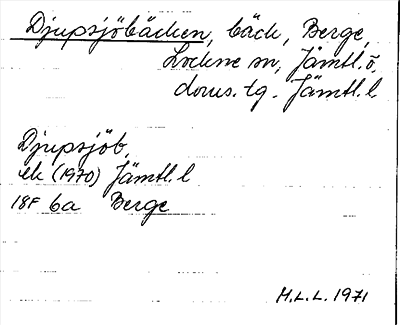 Djupsjöbäcken, bäck, Berge,
Lockne sn, Jämtl. ö.
doms. tg. Jämtl. l
Djupsjöb.
ek (1970) Jämtl. l
18F 6a Berge
H.L.L. 1971